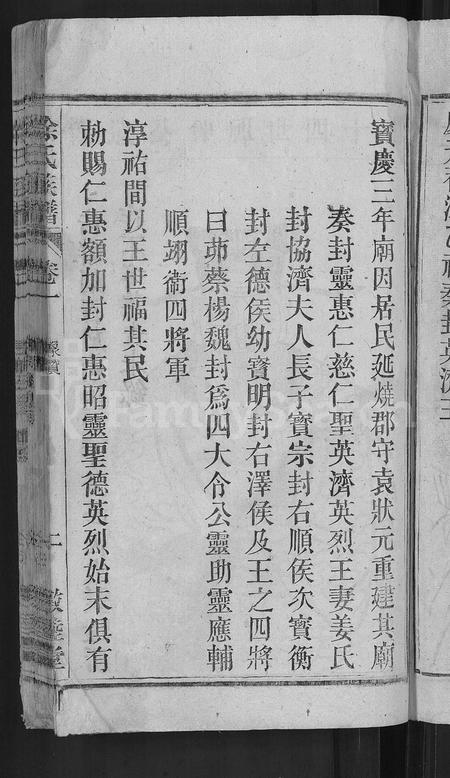 寶慶三年廟因居民延燒郡守袁狀元重建其廟
奏封靈惠仁慈仁聖英濟英烈王妻姜氏
封協濟夫人長子寶宗封右順侯次寶衡
封左德侯幼寶明封右澤侯及王之四將
曰茆蔡楊魏封爲四大令公靈助靈應輔
順翊衞四將軍
淳祐間以王世福其民
勅賜仁惠額加封仁惠昭靈聖德英烈始末俱有
徐氏族譜
卷一
二